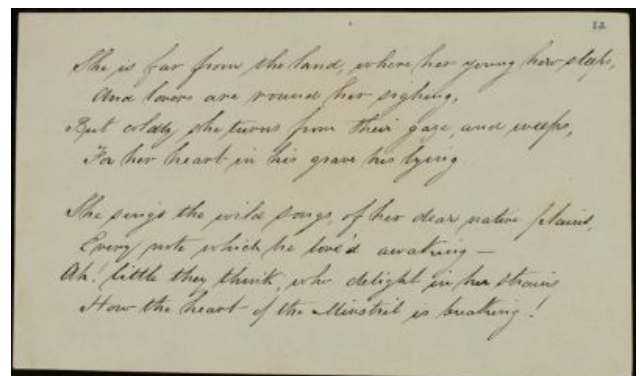 22
She is far from the land, where her young hero sleeps,
And lovers are round her sighing,
But coldly she turns from their gaze, and weeps,
For her heart in his grave his lying.
She sings the wild songs, of her dear native plains,
Every note which he lov'd awaking —
Ah! little they think, who delight in her strains
How the heart of the Minstril is breaking!